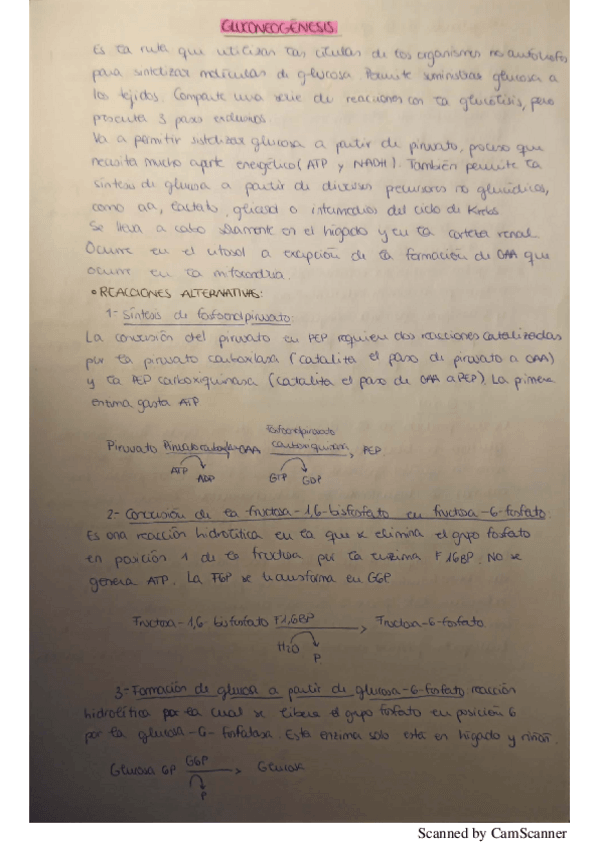 GLUCONEOGÉNESIS
Es la ruta que utilizan las células de los organismos no autótrofos
para sintetizar moléculas de glucosa. Permite suministrar glucosa a
los tejidos. Comparte una serie de reacciones con la glucólisis, pero
presenta 3 pasos exclusivos.
Va a permitir sintetizar glucosa a partir de piruvato, proceso que
necesita mucho aporte energético (ATP y NADH). También permite la
síntesis de glucosa a partir de diversos precursores no glucídicos,
como aa, lactato, glicerol o intermedios del ciclo de Krebs.
Se lleva a cabo solamente en el hígado y en la corteza renal.
Ocurre en el citosol a excepción de la formación de OAA que
ocurre en la mitocondria.
• REACCIONES ALTERNATIVAS:
1- Síntesis de fosfoenolpiruvato:
La conversión del piruvato en PEP requiere dos reacciones catalizadas
por la piruvato carboxilasa (cataliza el paso de piruvato a OAA)
y la PEP carboxiquinasa (cataliza el paso de OAA a PEP). La primera
enzima gasta ATP
Fosfoenolpiruvato
Piruvato Piruvato carboxilasa OAA carboxiquinasa PEP
ATP ADP GTP GDP
2- Conversión de la fructosa-1,6-bisfosfato en fructosa-6-fosfato:
Es una reacción hidrolítica en la que se elimina el grupo fosfato
en posición 1 de la fructosa por la enzima F16BP. No se
genera ATP. La F6P se transforma en G6P
Fructosa-1,6-bisfosfato F1,6BP Fructosa-6-fosfato
H2O P
3- Formación de glucosa a partir de glucosa-6-fosfato reacción
hidrolítica por la cual se libera el grupo fosfato en posición 6
por la glucosa-6-fosfatasa. Esta enzima solo está en hígado y riñón.
Glucosa 6P G6P Glucosa
P
Scanned by CamScanner